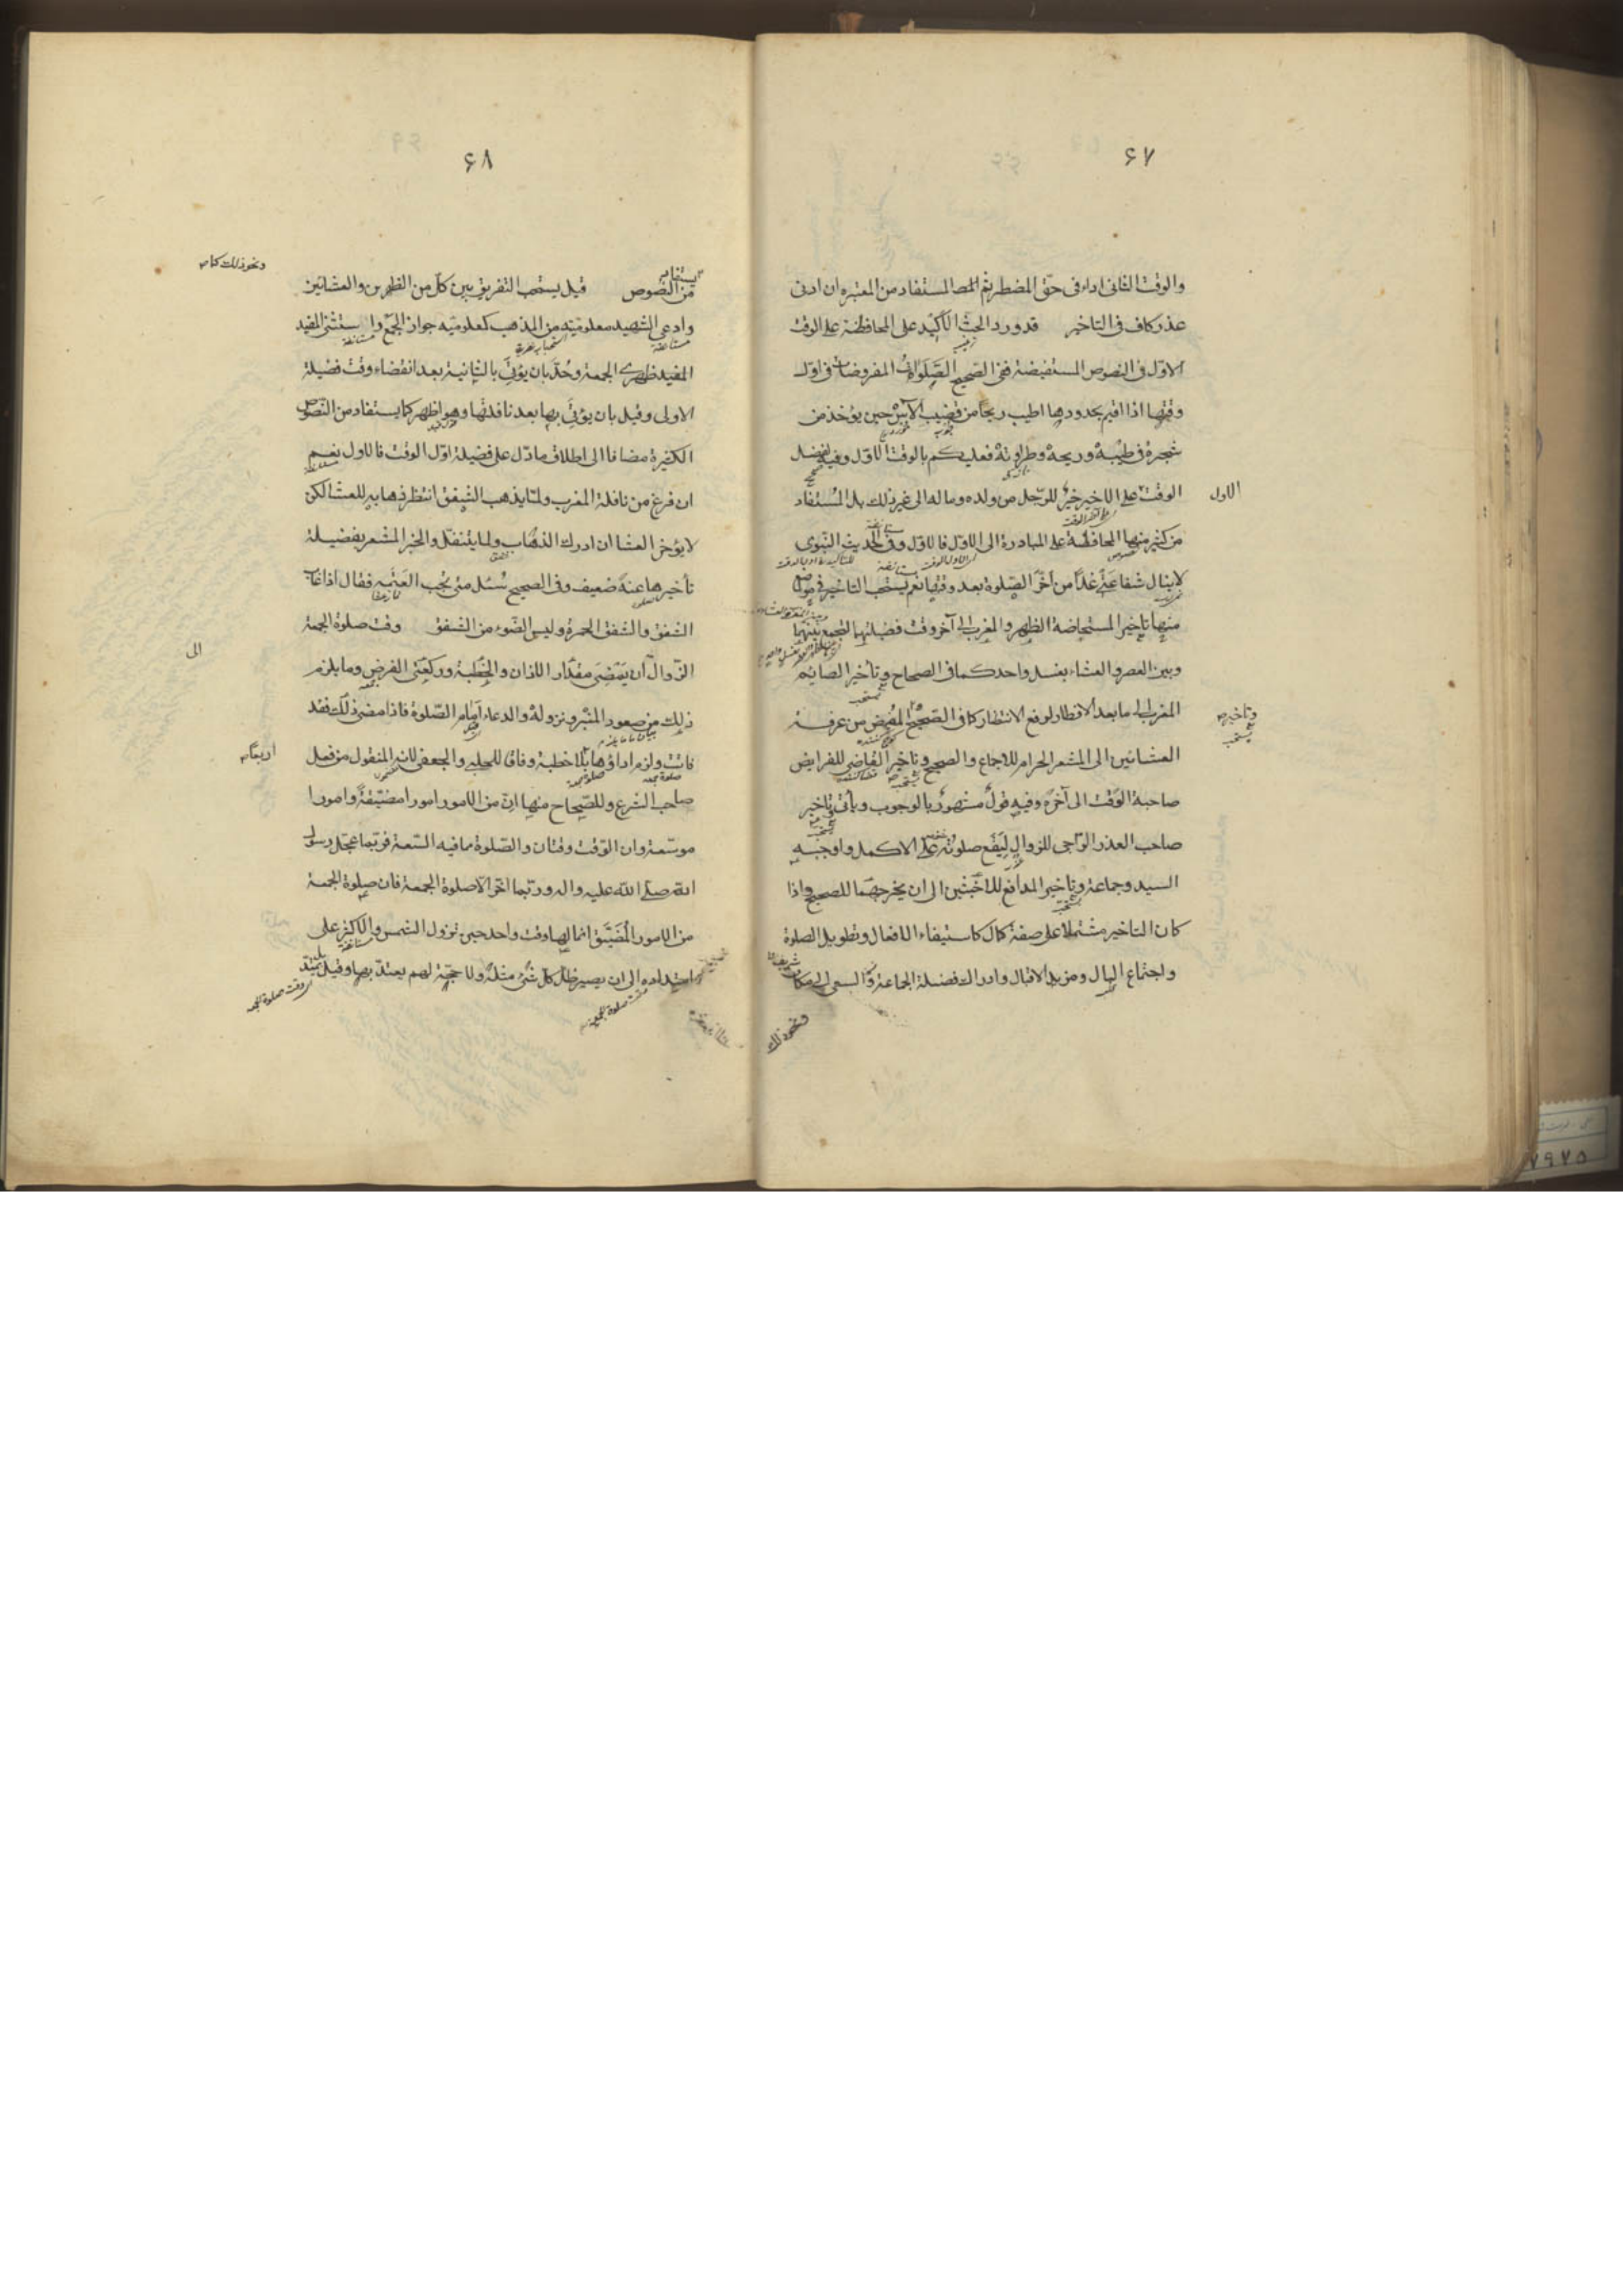 ۶۷
والوقت الثانی اداء فی حقّ المضطر ثم المستفاد من المعتبره ان ادنی
عذر کاف فی التاخیر قد ورد الحثّ الاکید علی المحافظة علی الوقت
الاوّل فی النصوص المستفیضة ففی الصّحیح الصّلوات المفروضات فی اوّل
وقتها اذا اقیم حدودها اطیب ریحا من قضیب الآس حین یؤخذ من
شجره فی طیبه وریحه وطراوته فعلیکم بالوقت الاوّل وفیه لفضل
الوقت الاول علی الاخیر خیر للرّجل من ولده وماله الی غیر ذلک بل المستفاد
من کثیر منها المحافظة علی المبادرة الی الاوّل فالاوّل وفی الحدیث النّبوی
لا ینال شفاعتی غداً من اخّر الصّلوة بعد وقتها نعم یستحب التاخیر فی مواضع
منها تاخیر المستحاضة الظهر والمغرب الی آخر وقت فضیلتهما للجمع بینهما
وبین العصر والعشاء بغسل واحد کما فی الصحاح وتأخیر الصایم
المغرب الی ما بعد الافطار لرفع الانتظار کما فی الصّحیح وتاخیر المفیض من عرفة
العشائین الی المشعر الحرام للاجماع والصحیح وتاخیر القاضی للفرایض
صاحبة الوقت الی آخره وفیه قول مشهور بالوجوب ویأتی وتاخیر
صاحب العذر الرّاجی للزوال لیقع صلوته علی الاکمل واوجبه
السید وجماعة وتاخیر المدافع للاخبثین الی ان یخرجهما للصحیح واذا
کان التاخیر مشتملا علی صفة کمال کاستیفاء الافعال وتطویل الصلوة
واجتماع البال ومزید الاقبال وادراک فضیلة الجماعة والسعی الی مکان شریف
ونحو ذلک
۶۸
ونحو ذلک کما یستفاد
من النّصوص قیل یستحب التفریق بین کلّ من الظهرین والعشائین
وادعی الشهید معلومیّته من المذهب کمعلومیّه جواز الجمع واستثنی المفید
المفید ظهری الجمعة وحُدّ بان یؤتی بالثانیة بعد انقضاء وقت فضیلة
الاولی وقیل بان یؤتی بها بعد نافلتها وهو اظهر کما یستفاد من النّصوص
الکثیرة مضافا الی اطلاق ما دّل علی فضیلة اوّل الوقت فالاول نعم
ان فرغ من نافلة المغرب ولمّا یذهب الشفق انتظر ذهابه للعشا لکن
لا یؤخر العشا ان ادرک الذهاب ولما یتنفل والخبر المشعر بفضیلة
تأخیرها عنه ضعیف وفی الصحیح سُئل متی تجب العتمه فقال اذا غاب
الشفق والشفق الحمرة ولیس الضّوء من الشفق وقت صلوة الجمعة
الزّوال الی ان یمضی مقدار الاذان والخطبة ورکعتی الفرض وما یلزم
ذلک من صعود المنبر ونزوله والدعاء امام الصّلوة فاذا مضی ذلک فقد
فاتت ولزم اداؤها اربعا بلا خطبة وفاقا للحلبی والجعفی لانه المنقول من فعل
صاحب الشرع وللصّحاح منها انّ من الامور امورا مضیّقة وامورا
موسّعة وان الوقت وقتان والصّلوة ما فیه السّعة فربّما عجّل رسول
الله صلّی الله علیه واله وربّما اخّر الّا صلوة الجمعة فان صلوة الجمعة
من الامور المُضَیّق انما لها وقت واحد حین تزول الشمس والاکثر علی
امتداده الی ان یصیر ظلّ کلّ شئ مثله ولا حجّة لهم یعتدّ بها وقیل یمتدّ